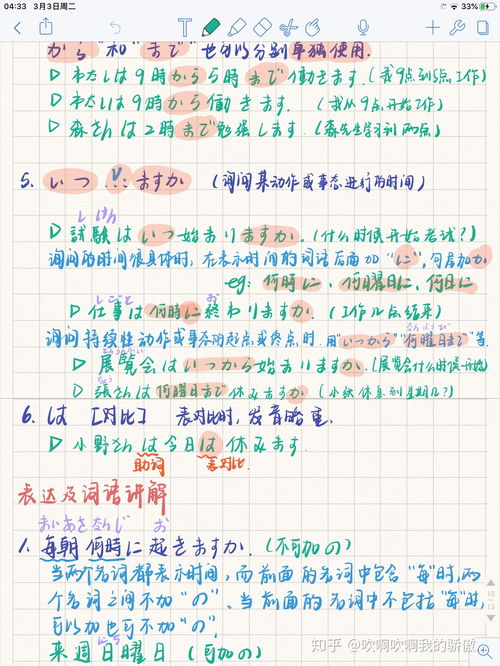 04:33 3月3日周二
33%
から"和"まで"也可以分别单独使用.
▷ わたしは9時から5時まで働きます.(我9点到5点工作)
▷ わたしは9時から働きます.(我从9点开始工作)
▷ 森さんは2時まで勉強します.(森先生学习到两点)
5. いつ V ...ますか (询问某动作或事态进行的时间)
しけん
▷ 試験はいつ始まりますか.(什么时候开始考试?)
询问的时间很具体时,在表示时间的词语后面加"に",句尾加か
eg: 何時に、何曜日に、何日に
しごと お
▷ 仕事は何時に終わりますか.(工作几点结束)
询问持续性动作或事态的起点或终点时.用"いつから""何曜日まで"等.
なんようび
てんらんかい
▷ 展覧会はいつから始まりますか.(展览会什么时候开始)
ちょう
▷ 張さんは何曜日まで休みますか.(小张休息到星期几?)
6. は [对比] 表对比时,发音略重.
▷ 小野さんは今日は休みます.
助词 表对比.
表达及词语讲解
まいあさなんじ お
1. 每朝何時に起きますか.(不可加の)
当两个名词都表示时间,而前面的名词中包含"每"时,两
个名词之间不加"の".当前面的名词中不包括"每"时,
可以加也可不加"の".
にち
来週日曜日 (可加の)
10
13
知乎 @吹啊吹啊我的骄傲